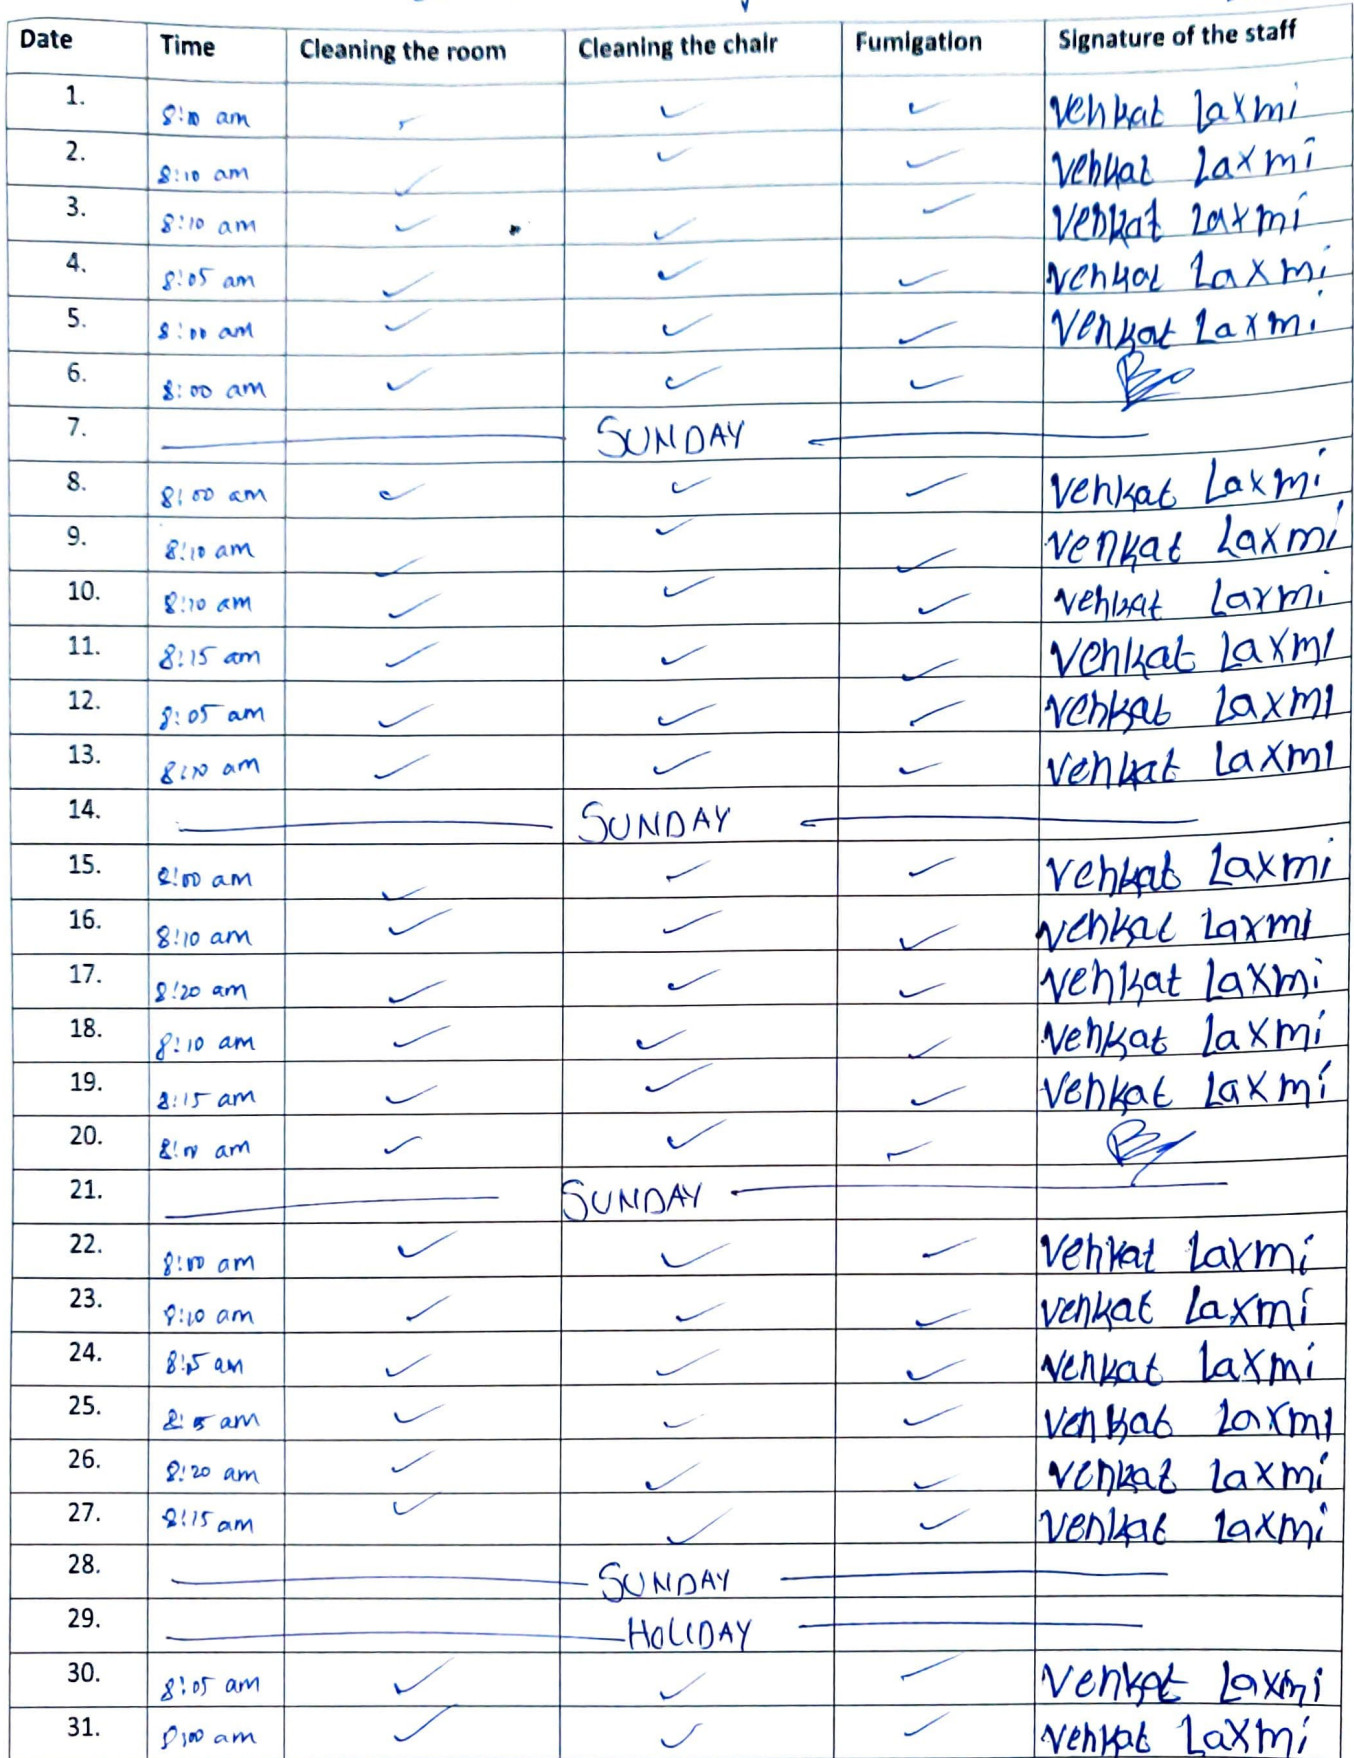 Date Time Cleaning the room Cleaning the chair Fumigation Signature of the staff
1. 8:10 am ✓ ✓ ✓ Venkat Laxmi
2. 8:10 am ✓ ✓ ✓ Venkat Laxmi
3. 8:10 am ✓ ✓ ✓ Venkat Laxmi
4. 8:05 am ✓ ✓ ✓ Venkat Laxmi
5. 8:00 am ✓ ✓ ✓ Venkat Laxmi
6. 8:00 am ✓ ✓ ✓
7. SUNDAY
8. 8:00 am ✓ ✓ ✓ Venkat Laxmi
9. 8:10 am ✓ ✓ ✓ Venkat Laxmi
10. 8:10 am ✓ ✓ ✓ Venkat Laxmi
11. 8:15 am ✓ ✓ ✓ Venkat Laxmi
12. 8:05 am ✓ ✓ ✓ Venkat Laxmi
13. 8:10 am ✓ ✓ ✓ Venkat Laxmi
14. SUNDAY
15. 8:00 am ✓ ✓ ✓ Venkat Laxmi
16. 8:10 am ✓ ✓ ✓ Venkat Laxmi
17. 8:20 am ✓ ✓ ✓ Venkat Laxmi
18. 8:10 am ✓ ✓ ✓ Venkat Laxmi
19. 8:15 am ✓ ✓ ✓ Venkat Laxmi
20. am ✓ ✓ ✓
21. SUNDAY
22. 8:00 am ✓ ✓ ✓ Venkat Laxmi
23. 8:10 am ✓ ✓ ✓ Venkat Laxmi
24. 8:15 am ✓ ✓ ✓ Venkat Laxmi
25. am ✓ ✓ ✓ Venkat Laxmi
26. 8:20 am ✓ ✓ ✓ Venkat Laxmi
27. 8:15 am ✓ ✓ ✓ Venkat Laxmi
28. SUNDAY
29. HOLIDAY
30. 8:05 am ✓ ✓ ✓ Venkat Laxmi
31. 8:00 am ✓ ✓ ✓ Venkat Laxmi